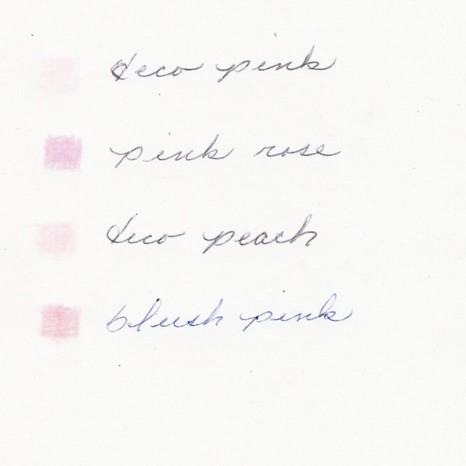 deco pink
pink rose
deco peach
blush pink